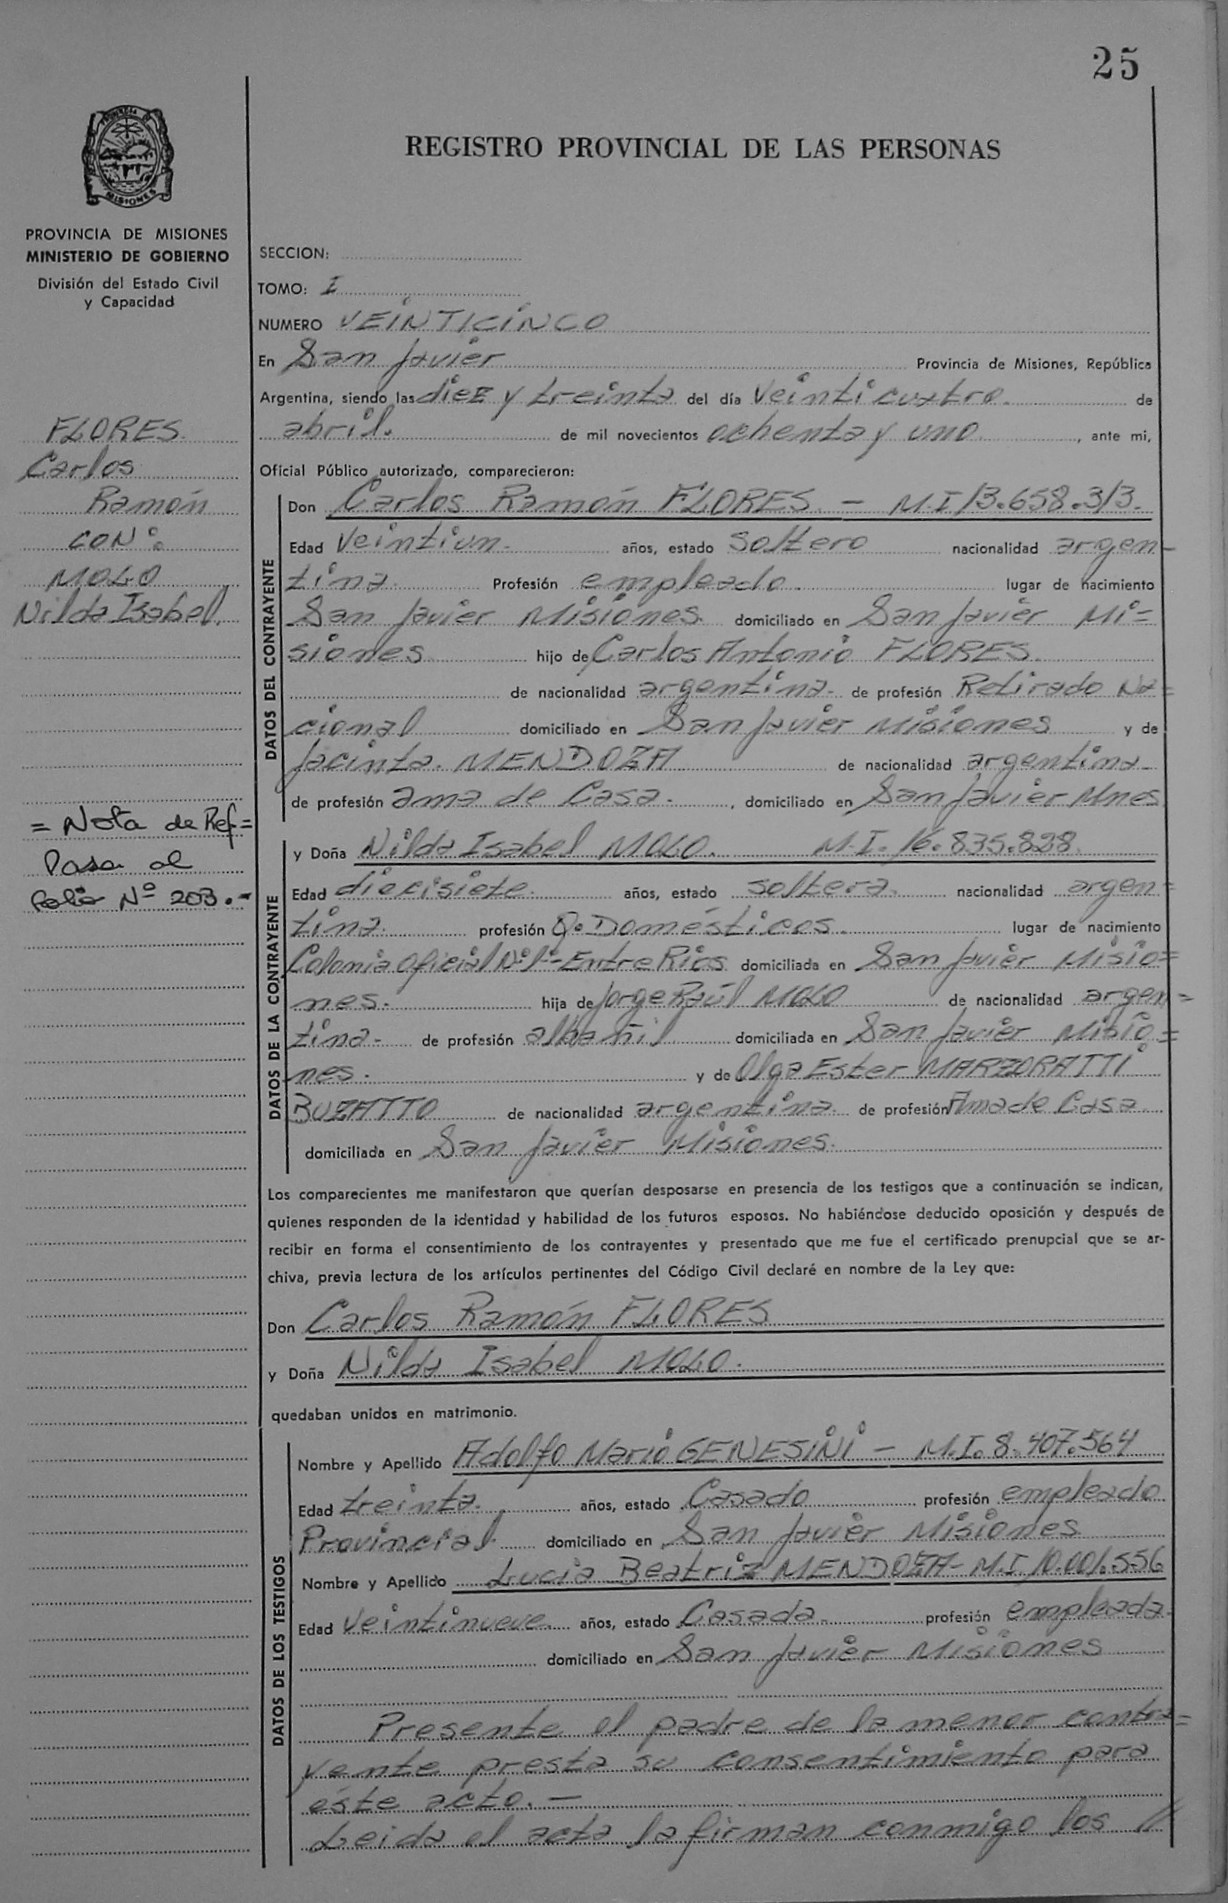 25
PROVINCIA DE
MISIONES
REGISTRO PROVINCIAL DE LAS PERSONAS
PROVINCIA DE MISIONES
MINISTERIO DE GOBIERNO
División del Estado Civil
y Capacidad
FLORES
Carlos
Ramón
CON:
MOLO
Nilda Isabel.
= Nota de Ref =
Pasa al
folio Nº 203.-
SECCION:
TOMO: I
NUMERO VEINTICINCO
En San Javier Provincia de Misiones, República
Argentina, siendo las diez y treinta del día Veinticuatro. de
abril. de mil novecientos ochenta y uno, ante mi,
Oficial Público autorizado, comparecieron:
DATOS DEL CONTRAYENTE
Don Carlos Ramón FLORES - M.I 13.658.313.
Edad Veintiun. años, estado Soltero nacionalidad argen-
tina. Profesión empleado. lugar de nacimiento
San Javier Misiones. domiciliado en San Javier Mi=
siones hijo de Carlos Antonio FLORES.
de nacionalidad argentina. de profesión Retirado Na=
cional domiciliado en San Javier Misiones y de
Jacinta. MENDOZA de nacionalidad argentina.
de profesión ama de Casa. , domiciliado en San Javier Mnes
DATOS DE LA CONTRAYENTE
y Doña Nilda Isabel MOLO. M.I. 16.835.828.
Edad diecisiete. años, estado soltera. nacionalidad argen=
tina. profesión Q. Domésticos. lugar de nacimiento
Colonia Oficial Nº1-Entre Rios domiciliada en San Javier Misio=
nes. hija de Jorge Raúl MOLO de nacionalidad argen=
tina- de profesión albañil domiciliada en San Javier Misio=
nes. y de Olga Ester MARZORATTI
BUZATTO de nacionalidad argentina. de profesión Ama de Casa
domiciliada en San Javier Misiones.
Los comparecientes me manifestaron que querían desposarse en presencia de los testigos que a continuación se indican,
quienes responden de la identidad y habilidad de los futuros esposos. No habiéndose deducido oposición y después de
recibir en forma el consentimiento de los contrayentes y presentado que me fue el certificado prenupcial que se ar-
chiva, previa lectura de los artículos pertinentes del Código Civil declaré en nombre de la Ley que:
Don Carlos Ramón FLORES
y Doña Nilda Isabel MOLO.
quedaban unidos en matrimonio.
DATOS DE LOS TESTIGOS
Nombre y Apellido Adolfo Mario GENESINI - M.I. 8.407.564
Edad treinta. años, estado Casado profesión empleado
Provincial. domiciliado en San Javier Misiones
Nombre y Apellido Lucia Beatriz MENDOZA- M.I. 10.001.556
Edad Veintinueve años, estado Casada. profesión empleada.
domiciliado en San Javier Misiones
Presente el padre de la menor contra=
yente presta su consentimiento para
éste acto.-
Leida el acta la firman conmigo los //